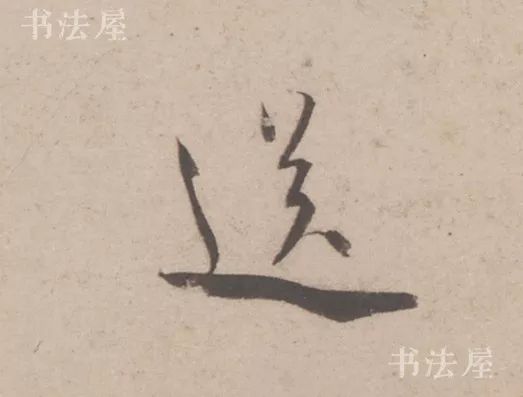 书法屋
送
书法屋